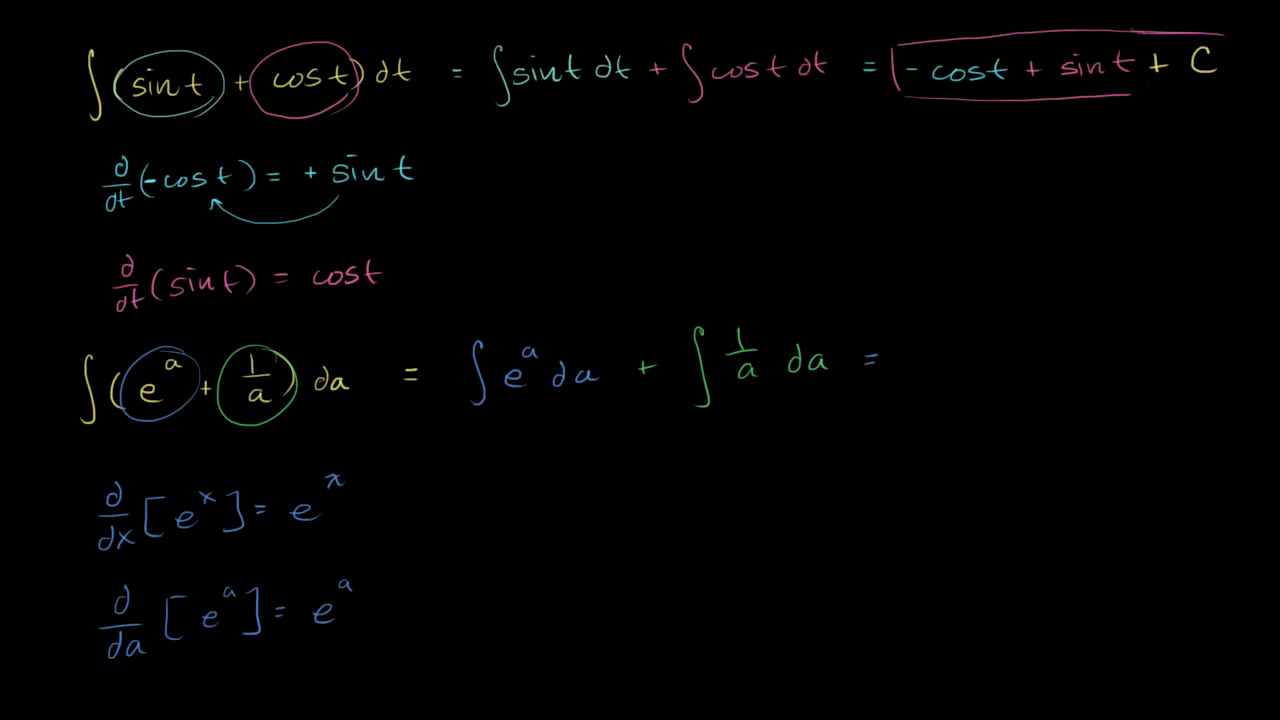 ∫(sin t + cos t) dt = ∫sin t dt + ∫cos t dt = - cos t + sin t + C
d/dt (-cos t) = + sin t
d/dt (sin t) = cos t
∫(e^a + 1/a) da = ∫ e^a da + ∫ 1/a da =
d/dx [e^x] = e^x
d/da [e^a] = e^a